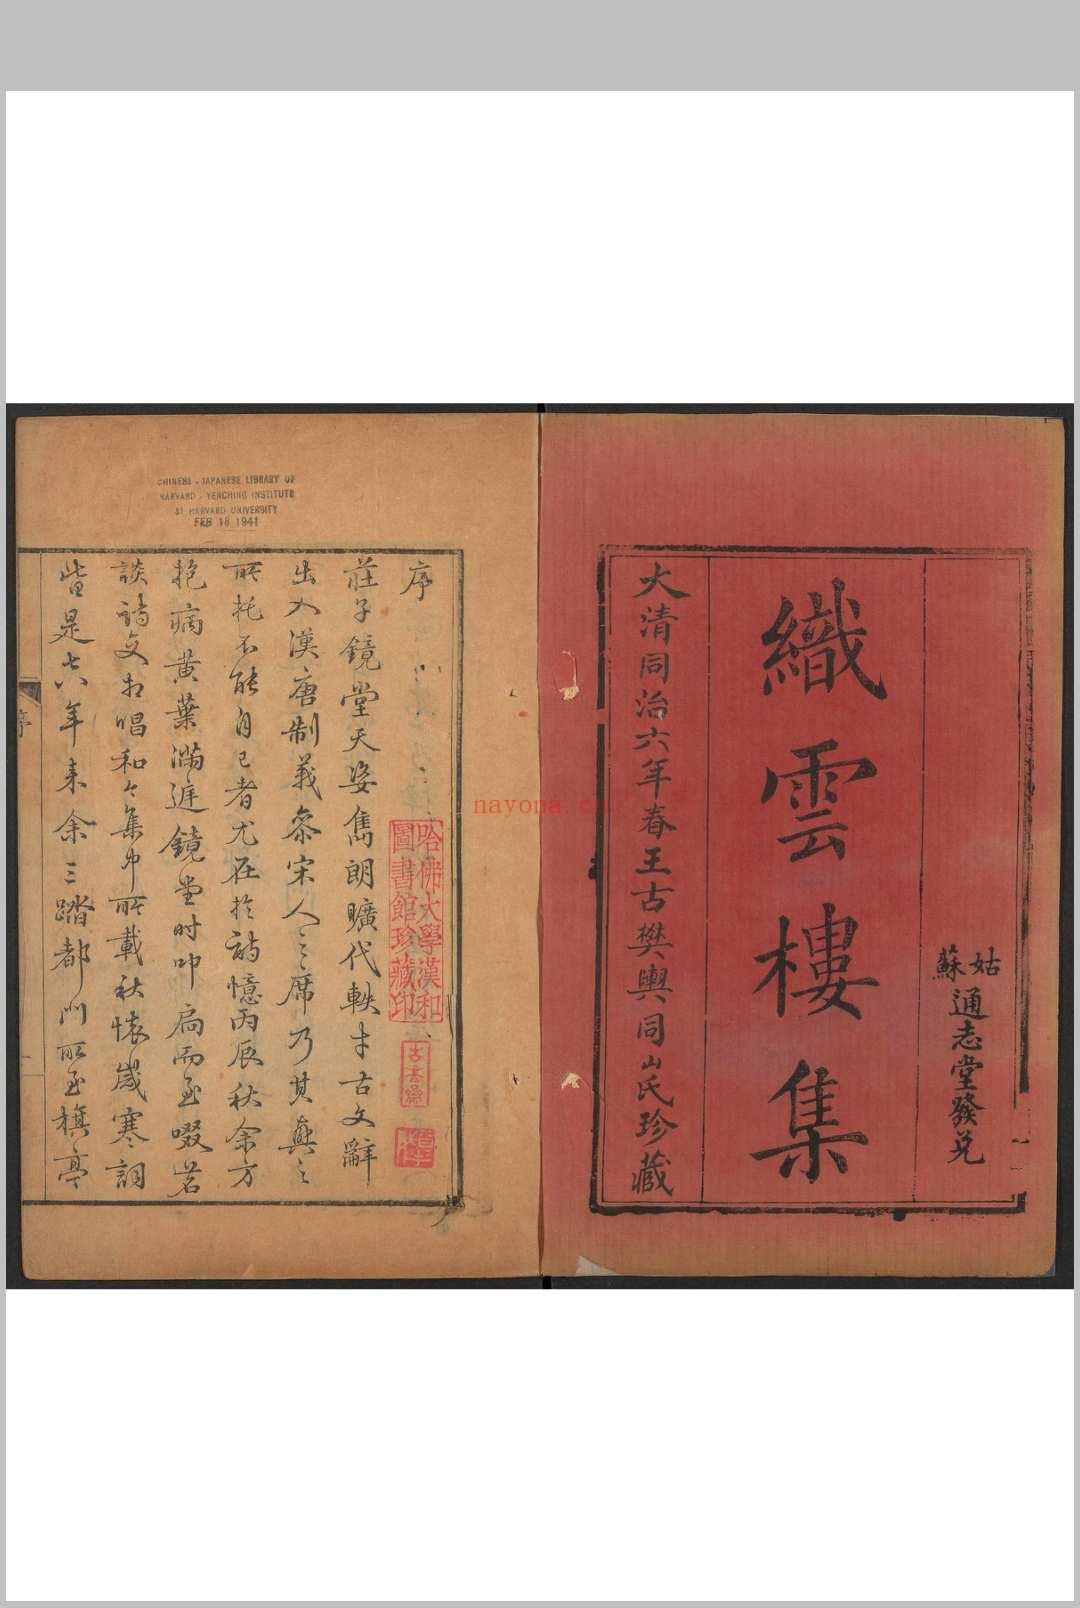 姑蘇
通志堂發兌
織雲樓集
大清同治六年春王古樊輿同山氏珍藏
CHINESE - JAPANESE LIBRARY OF
HARVARD - YENCHING INSTITUTE
AT HARVARD UNIVERSITY
FEB 18 1941
序
莊子鏡堂天姿雋朗曠代軼才古文辭
出入漢唐制義奈宋人之席乃其真之
所托不能自已者尤在於詩憶丙辰秋余方
抱病黃葉滿庭鏡堂時叩扃而至啜茗
談詩文相唱和々集中所載秋懷歲寒詞
皆是七八年來余三踏都門所至旗亭
哈佛大學漢和
圖書館珍藏印
序
nayona.cn